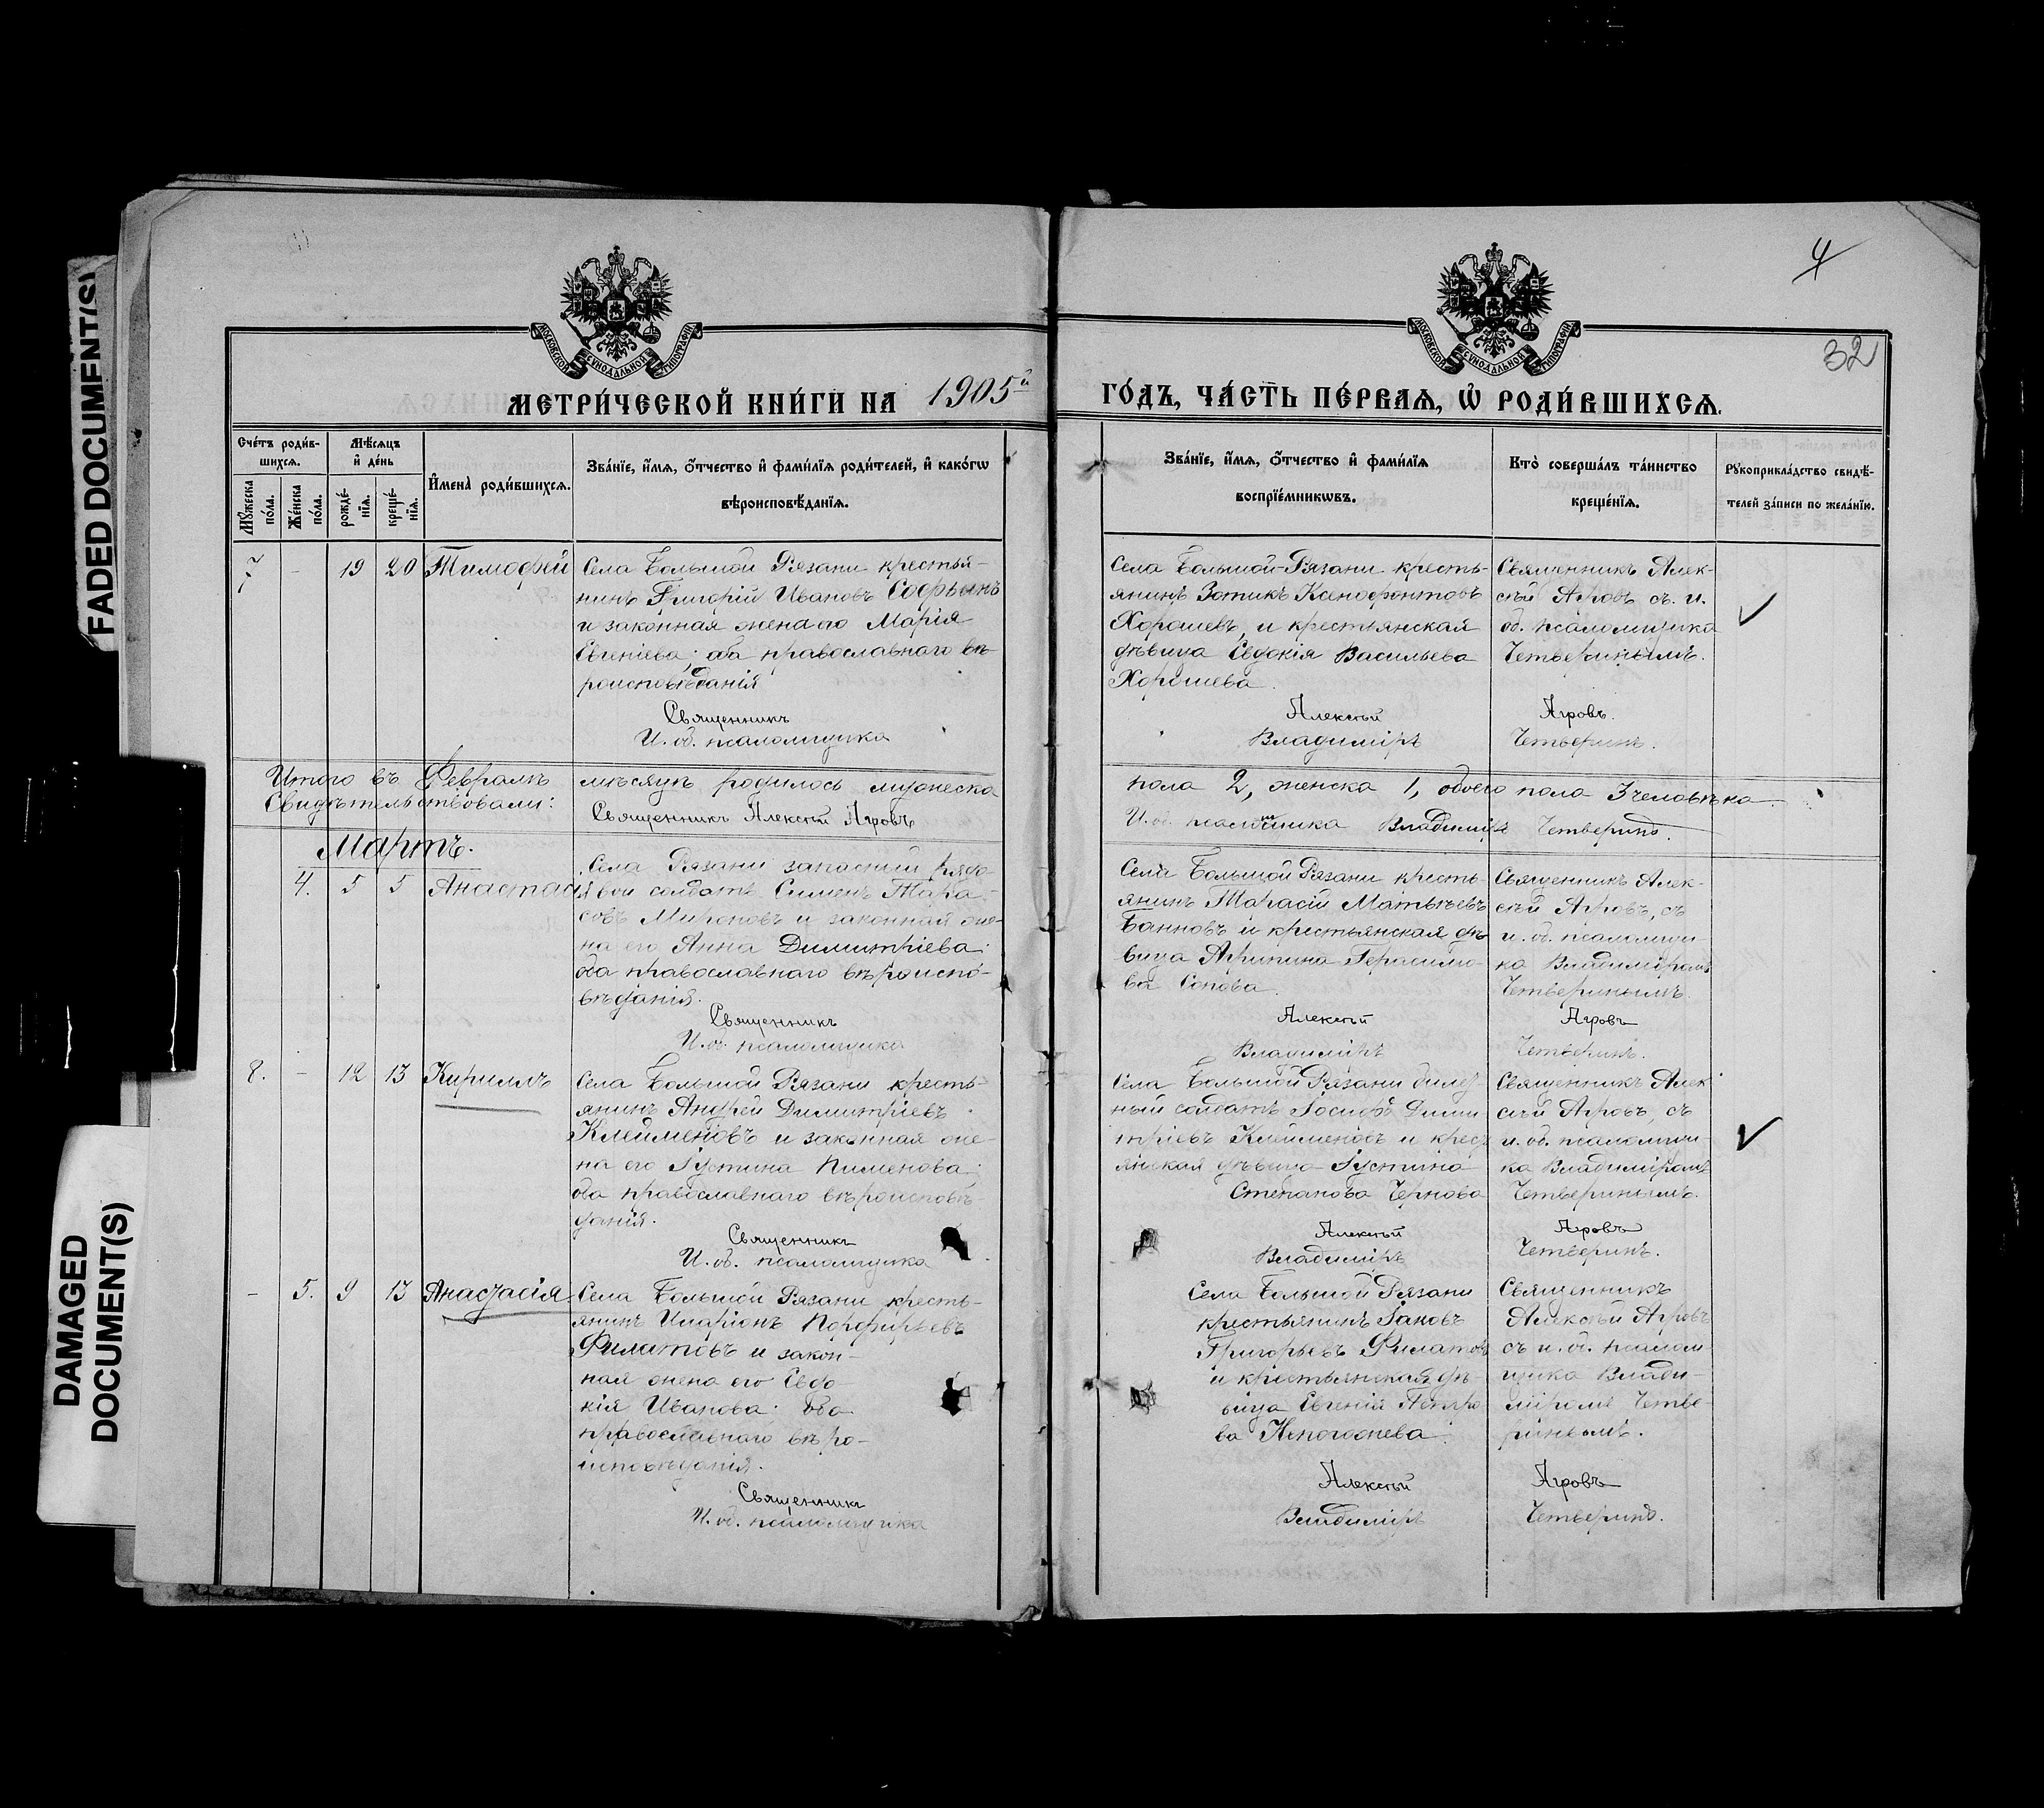 FADED DOCUMENT(S)
DAMAGED
DOCUMENT(S)
4
32
МОСКОВСКОЙ СУНОДАЛЬНОЙ ТИПОГРАФІИ
МОСКОВСКОЙ СУНОДАЛЬНОЙ ТИПОГРАФІИ
МЕТРИ́ЧЕСКОЙ КНИ́ГИ НА 1905й ГО́ДЪ, ЧА́СТЬ ПЕ́РВАѦ, Ѡ҆ РОДИ́ВШИХСѦ.
Сче́тъ роди́в-
шихсѧ.
Мѣ́сѧцъ
и҆ де́нь
Мꙋ́жеска
по́ла.
Же́нска
по́ла.
рожде́-
нїѧ.
креще́-
нїѧ.
И҆мена̀ роди́вшихсѧ.
Зва́нїе, и҆́мѧ, ѻ҆́тчество и҆ фами́лїѧ роди́телей, и҆ како́гѡ
вѣроисповѣ́данїѧ.
Зва́нїе, и҆́мѧ, ѻ҆́тчество и҆ фами́лїѧ
воспрїе́мникѡвъ.
Кто̀ соверша́лъ та́инство
креще́нїѧ.
Рꙋкоприкла́дство свидѣ́-
телей за́писи по жела́нїю.
7 - 19 20 Тимофей
Села Большой Рязани крестья-
нинъ Григорій Ивановъ Софьинъ
и законная жена его Марія
Евгеніева; оба православнаго вѣ-
роисповѣданія
Священникъ
И. об. псаломщика
Села Большой-Рязани кресть-
янинъ Зотикъ Ксенофонтовъ
Хорошевъ, и крестьянская
дѣвица Евдокія Васильева
Хорошева.
Алексѣй
Владиміръ
Священникъ Алек-
сѣй Агровъ съ и.
об. псаломщика
Четверинымъ.
Агровъ.
Четверинъ.
Итого въ Февралѣ мѣсяцѣ родилось мужеска пола 2, женска 1, обоего пола 3 человѣка
Свидѣтельствовали: Священникъ Алексѣй Агровъ
И. об. псаломщика Владиміръ Четверинъ.
Мартъ.
4. 5 5 Анастасія
Села Рязани запасный рядо-
вой солдатъ Симеонъ Тара-
совъ Мироновъ и законная же-
на его Анна Димитріева;
оба православнаго вѣроиспо-
вѣданія.
Священникъ
И. об. псаломщика
Села Большой Рязани кресть-
янинъ Тарасій Матвѣевъ
Банновъ и крестьянская дѣ-
вица Агрипина Герасимо-
ва Сонова.
Алексѣй
Владиміръ
Священникъ Алек-
сѣй Агровъ, съ
и. об. псаломщи-
ка Владиміромъ
Четверинымъ.
Агровъ
Четверинъ.
8. - 12 13 Кириллъ
Села Большой Рязани кресть-
янинъ Андрей Димитріевъ
Клейменовъ и законная же-
на его Іустина Пименова;
оба православнаго вѣроисповѣ-
данія.
Священникъ
И. об. псаломщика
Села Большой Рязани билет-
ный солдатъ Іосифъ Дими-
тріевъ Клейменовъ и крест-
янская дѣвица Іустина
Степанова Чернова
Алексѣй
Владиміръ
Священникъ Алек-
сѣй Агровъ, съ
и. об. псаломщи-
ка Владиміромъ
Четверинымъ.
Агровъ
Четверинъ.
- 5. 9 13 Анастасія
Села Большой Рязани кресть-
янинъ Иларіонъ Порфирьевъ
Филатовъ и закон-
ная жена его Евдо-
кія Иванова; оба
православнаго вѣро-
исповѣданія.
Священникъ
И. об. псаломщика
Села Большой Рязани
крестьянинъ Іаковъ
Григорьевъ Филатовъ
и крестьянская дѣ-
вица Евгенія Петро-
ва
Алексѣй
Владиміръ
Священникъ
Алексѣй Агровъ
съ и. об. псалом-
щика Влади-
міромъ Четве-
ринымъ.
Агровъ
Четверинъ.